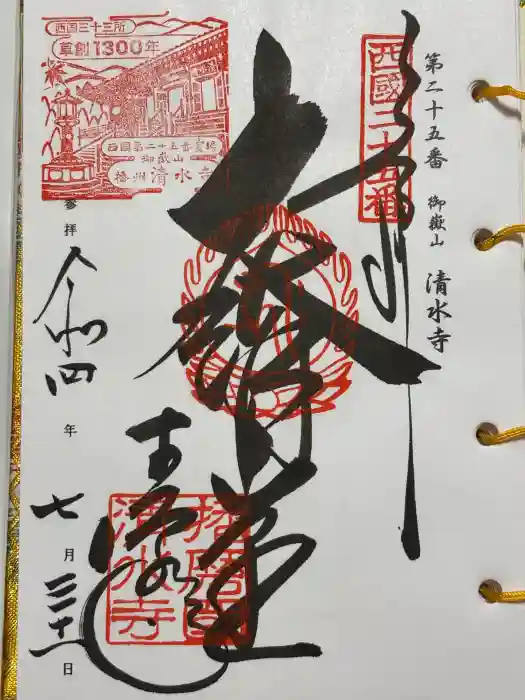 第二十五番 御嶽山 清水寺
西國二十五番
大講堂
西国三十三所
草創1300年
西国第二十五番霊場
御嶽山
播州 清水寺
参拝
令和四年
七月三十一日
清水寺